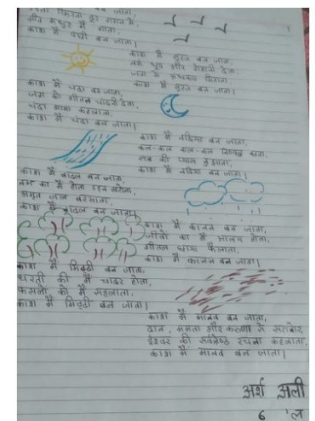 काश मैं पंछी बन जाता।
काश मैं सूरज बन जाता,
काश मैं सूरज बन जाता।
काश मैं चंदा बन जाता,
जग को शीतल चांदनी देता,
चंदा मामा कहलाता,
काश मैं चंदा बन जाता।
काश मैं नदिया बन जाता,
कल-कल कल-कल
सब की प्यास बुझाता,
काश मैं नदिया बन जाता।
काश मैं बादल बन जाता,
अमृत जल बरसाता,
काश मैं बादल बन जाता।
काश मैं कानन बन जाता,
जीवों का मैं आलय होता,
शीतल छाया फैलाता,
काश मैं कानन बन जाता।
काश मैं मिट्टी बन जाता,
धरती की मैं चादर होता,
फसलों को मैं
काश मैं मिट्टी बन जाता।
काश मैं मानव बन जाता,
दान, ममता और करुणा से सराबोर
ईश्वर की सर्वश्रेष्ठ रचना कहलाता,
काश मैं मानव बन जाता।
अर्श अली
6 'ल